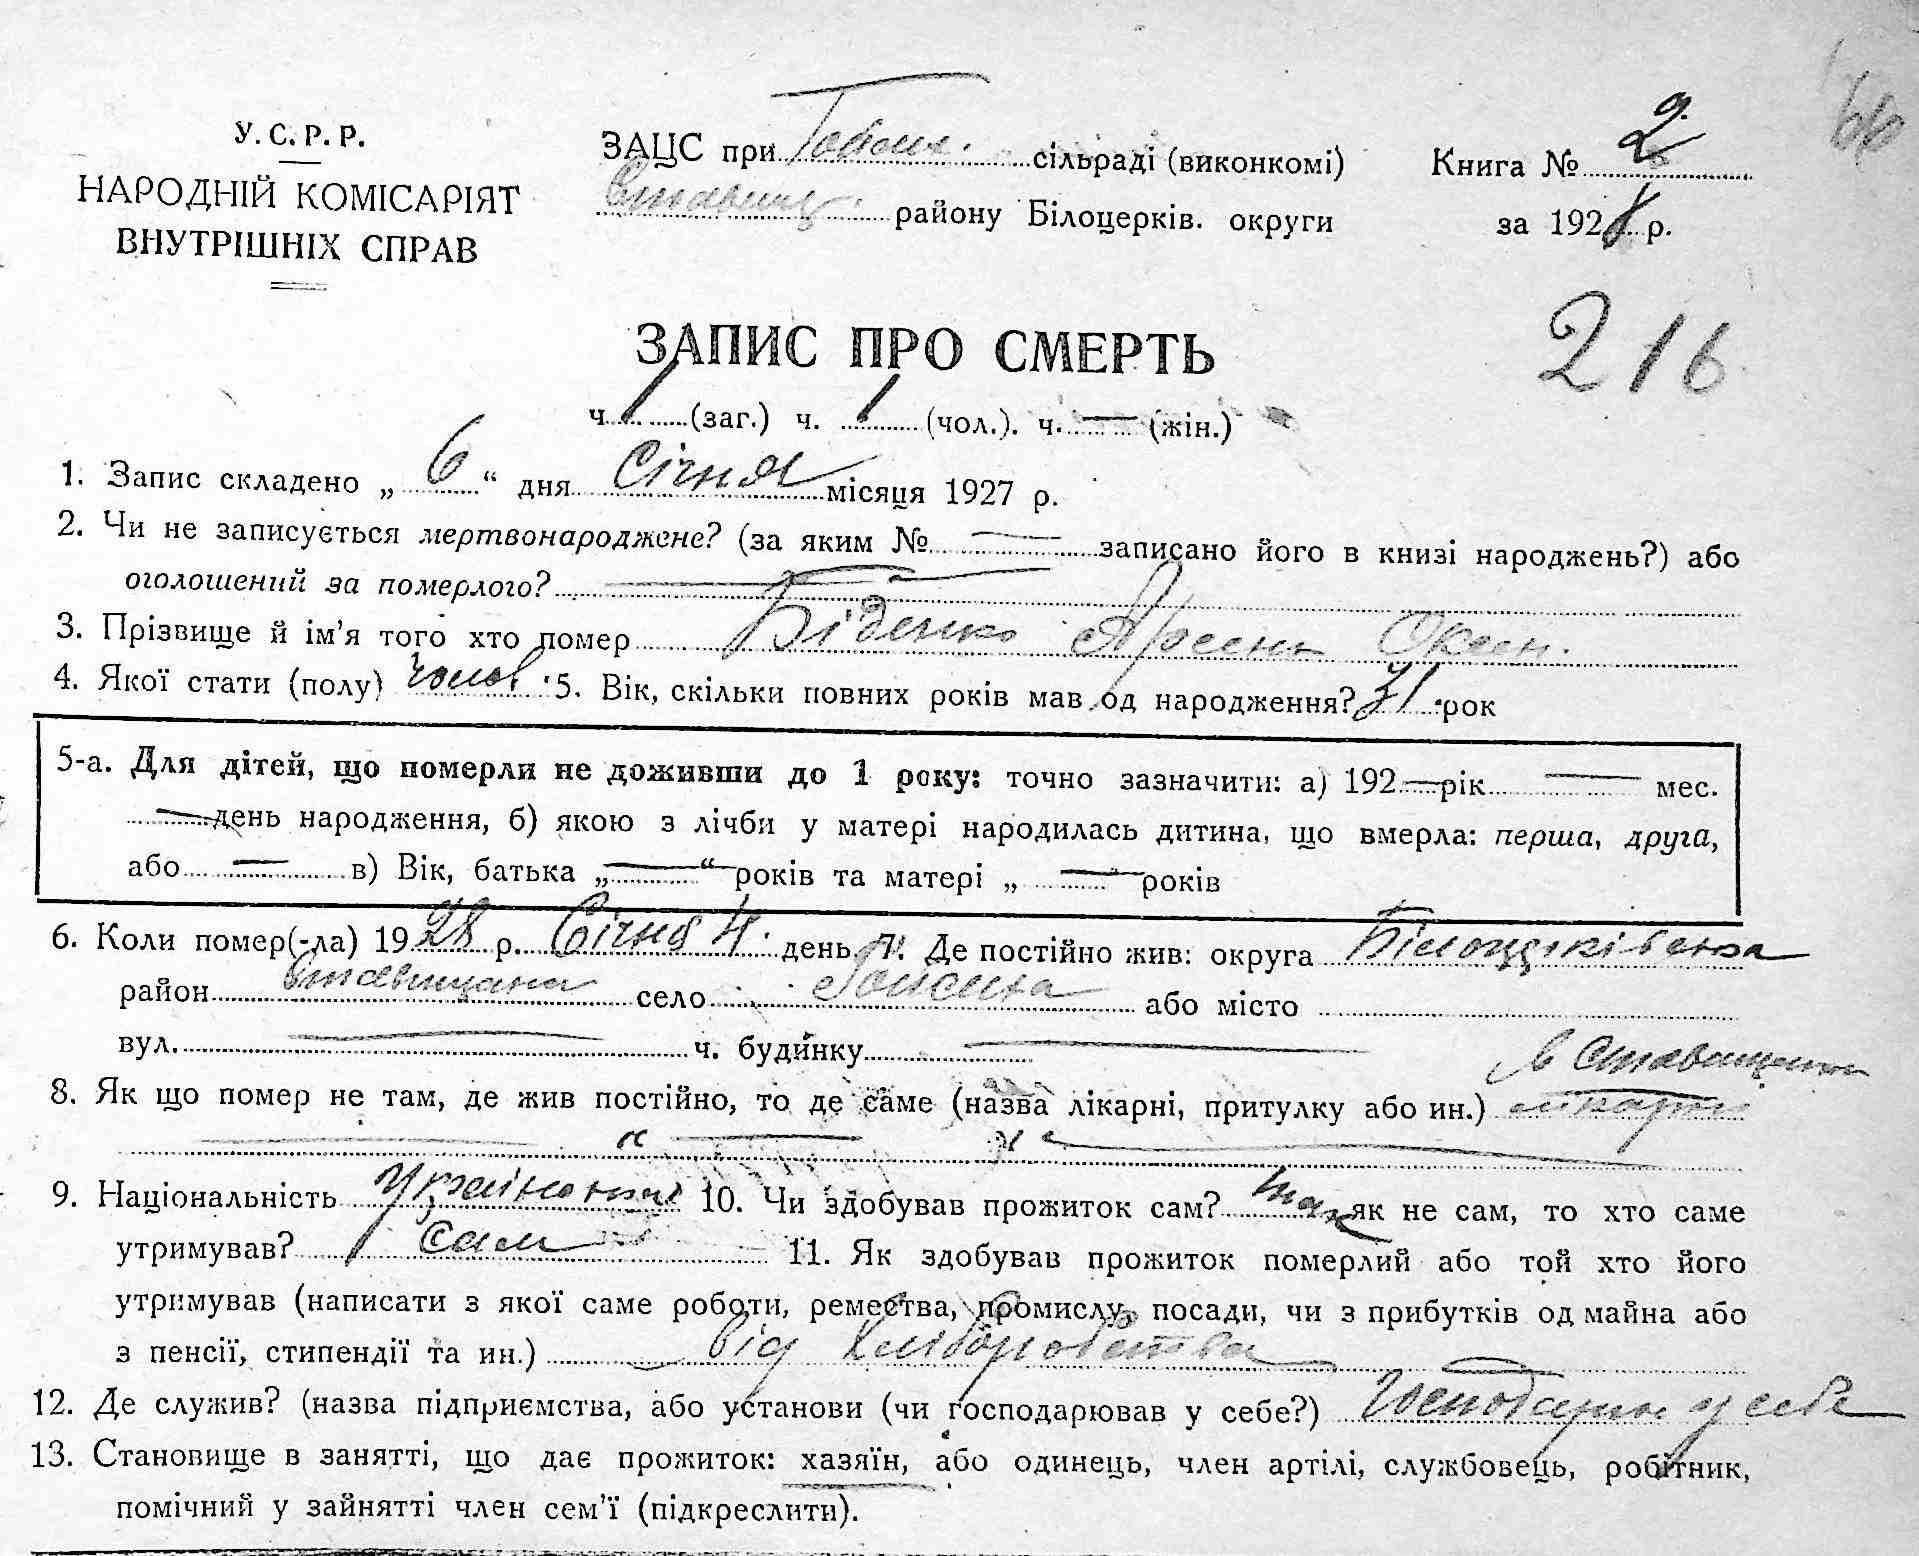 У. С. Р. Р.
НАРОДНІЙ КОМІСАРІЯТ
ВНУТРІШНІХ СПРАВ
ЗАЦС при сільраді (виконкомі)
Ставищ. району Білоцерків. округи
Книга № 2
за 1928 р.
216
ЗАПИС ПРО СМЕРТЬ
ч. 1 (заг.) ч. 1 (чол.). ч. — (жін.)
1. Запис складено „ 6 “ дня Січня місяця 1927 р.
2. Чи не записується мертвонароджене? (за яким № — записано його в книзі народжень?) або
оголошений за померлого? —
3. Прізвище й ім’я того хто помер Біденко Арсень Оксен.
4. Якої стати (полу) чолов. 5. Вік, скільки повних років мав од народження? 31 рок
5-а. Для дітей, що померли не доживши до 1 року: точно зазначити: а) 192 — рік — мес.
— день народження, б) якою з лічби у матері народилась дитина, що вмерла: перша, друга,
або — в) Вік, батька „ — “ років та матері „ — років
6. Коли помер(-ла) 1928 р. Січня 4 день 7. Де постійно жив: округа Білоцерківська
район Ставищан село або місто
вул. — ч. будинку —
8. Як що помер не там, де жив постійно, то де саме (назва лікарні, притулку або ин.) в Ставищан
лікарні
— “ — “ —
9. Національність Українець 10. Чи здобував прожиток сам? так як не сам, то хто саме
утримував? сам 11. Як здобував прожиток померлий або той хто його
утримував (написати з якої саме роботи, ремества, промислу, посади, чи з прибутків од майна або
з пенсії, стипендії та ин.) від хліборобства
12. Де служив? (назва підприємства, або установи (чи господарював у себе?) господарив у себе
13. Становище в занятті, що дає прожиток: хазяїн, або одинець, член артілі, службовець, робітник,
помічний у зайнятті член сем’ї (підкреслити).